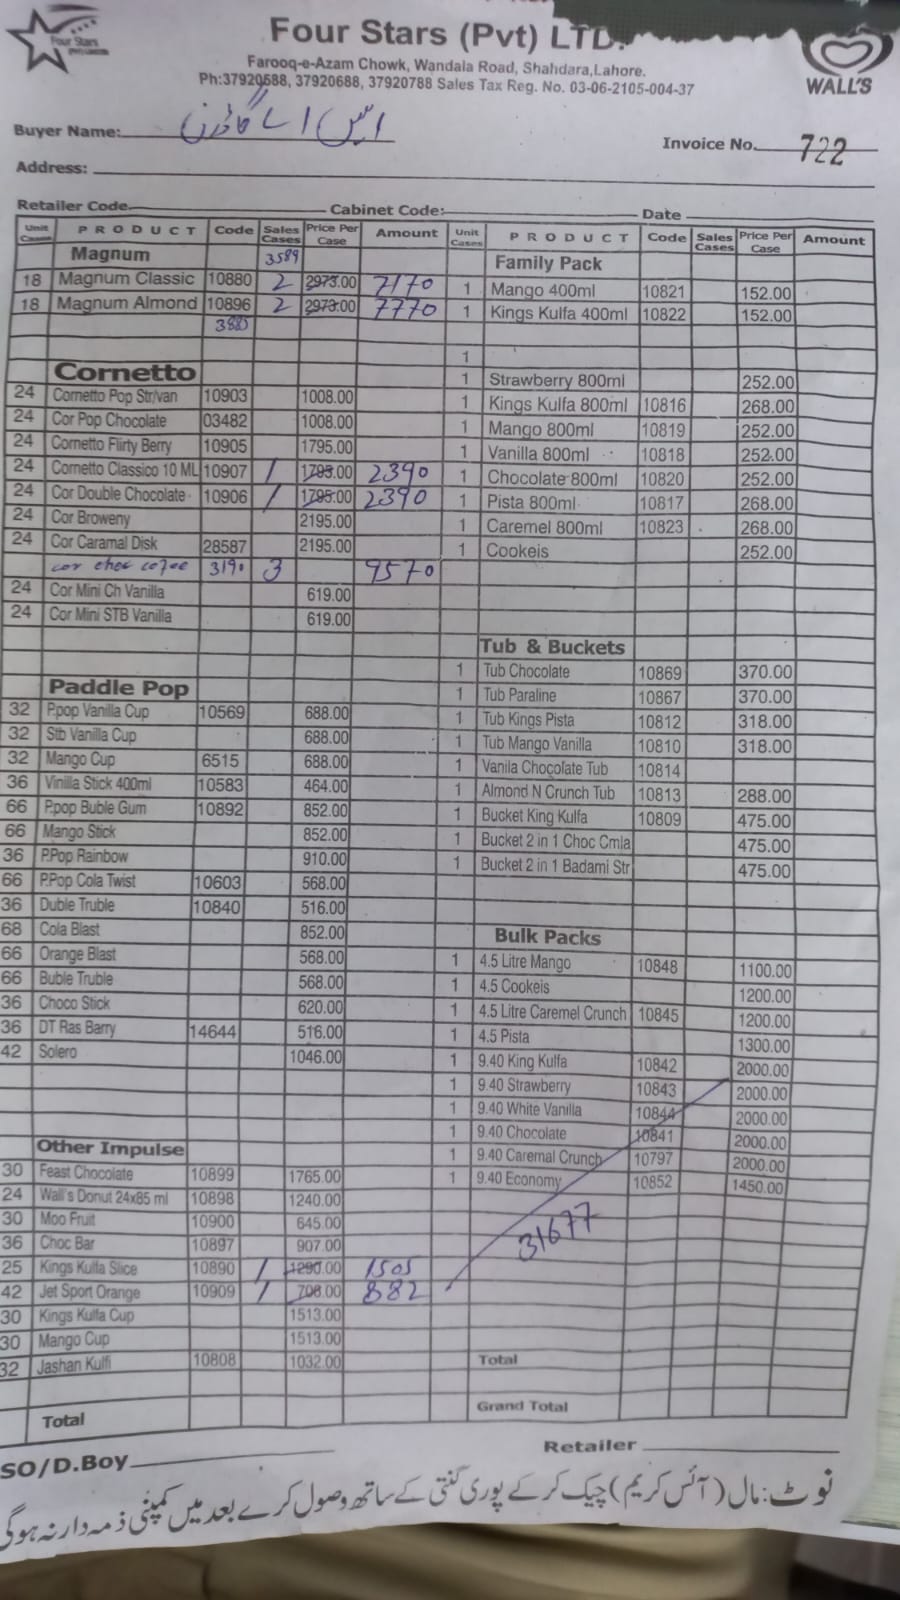 Four Stars (PVT) LIMITED
Four Stars (Pvt) LTD.
Farooq-e-Azam Chowk, Wandala Road, Shahdara,Lahore.
Ph:37920588, 37920688, 37920788 Sales Tax Reg. No. 03-06-2105-004-37
WALL'S
Buyer Name: ایس اے گارڈن
Invoice No. 722
Address:
Retailer Code Cabinet Code: Date
Unit Cases PRODUCT Code Sales Cases Price Per Case Amount
Magnum 3589
18 Magnum Classic 10880 2 2973.00 7170
18 Magnum Almond 10896 2 2973.00 7770
3885
Cornetto
24 Cornetto Pop Str/van 10903 1008.00
24 Cor Pop Chocolate 03482 1008.00
24 Cornetto Flirty Berry 10905 1795.00
24 Cornetto Classico 10 ML 10907 1 1795.00 2390
24 Cor Double Chocolate 10906 1 1795.00 2390
24 Cor Broweny 2195.00
24 Cor Caramal Disk 28587 2195.00
cor choc cofee 3190 3 9570
24 Cor Mini Ch Vanilla 619.00
24 Cor Mini STB Vanilla 619.00
Paddle Pop
32 P.pop Vanilla Cup 10569 688.00
32 Stb Vanilla Cup 688.00
32 Mango Cup 6515 688.00
36 Vinilla Stick 400ml 10583 464.00
66 P.pop Buble Gum 10892 852.00
66 Mango Stick 852.00
36 P.Pop Rainbow 910.00
66 P.Pop Cola Twist 10603 568.00
36 Duble Truble 10840 516.00
68 Cola Blast 852.00
66 Orange Blast 568.00
66 Buble Truble 568.00
36 Choco Stick 620.00
36 DT Ras Barry 14644 516.00
42 Solero 1046.00
Other Impulse
30 Feast Chocolate 10899 1765.00
24 Wall's Donut 24x85 ml 10898 1240.00
30 Moo Fruit 10900 645.00
36 Choc Bar 10897 907.00
25 Kings Kulfa Slice 10890 1 1290.00 1505
42 Jet Sport Orange 10909 1 708.00 882
30 Kings Kulfa Cup 1513.00
30 Mango Cup 1513.00
32 Jashan Kulfi 10808 1032.00
Total
Unit Cases PRODUCT Code Sales Cases Price Per Case Amount
Family Pack
1 Mango 400ml 10821 152.00
1 Kings Kulfa 400ml 10822 152.00
1
1 Strawberry 800ml 252.00
1 Kings Kulfa 800ml 10816 268.00
1 Mango 800ml 10819 252.00
1 Vanilla 800ml 10818 252.00
1 Chocolate 800ml 10820 252.00
1 Pista 800ml 10817 268.00
1 Caremel 800ml 10823 268.00
1 Cookeis 252.00
Tub & Buckets
1 Tub Chocolate 10869 370.00
1 Tub Paraline 10867 370.00
1 Tub Kings Pista 10812 318.00
1 Tub Mango Vanilla 10810 318.00
1 Vanila Chocolate Tub 10814
1 Almond N Crunch Tub 10813 288.00
1 Bucket King Kulfa 10809 475.00
1 Bucket 2 in 1 Choc Cmla 475.00
1 Bucket 2 in 1 Badami Str 475.00
Bulk Packs
1 4.5 Litre Mango 10848 1100.00
1 4.5 Cookeis 1200.00
1 4.5 Litre Caremel Crunch 10845 1200.00
1 4.5 Pista 1300.00
1 9.40 King Kulfa 10842 2000.00
1 9.40 Strawberry 10843 2000.00
1 9.40 White Vanilla 10844 2000.00
1 9.40 Chocolate 10841 2000.00
1 9.40 Caremal Crunch 10797 2000.00
1 9.40 Economy 10852 1450.00
31677
Total
Grand Total
SO/D.Boy Retailer
نوٹ: مال (آئس کریم) چیک کر کے پوری گنتی کے ساتھ وصول کرے بعد میں کمپنی ذمہ دار نہ ہوگی